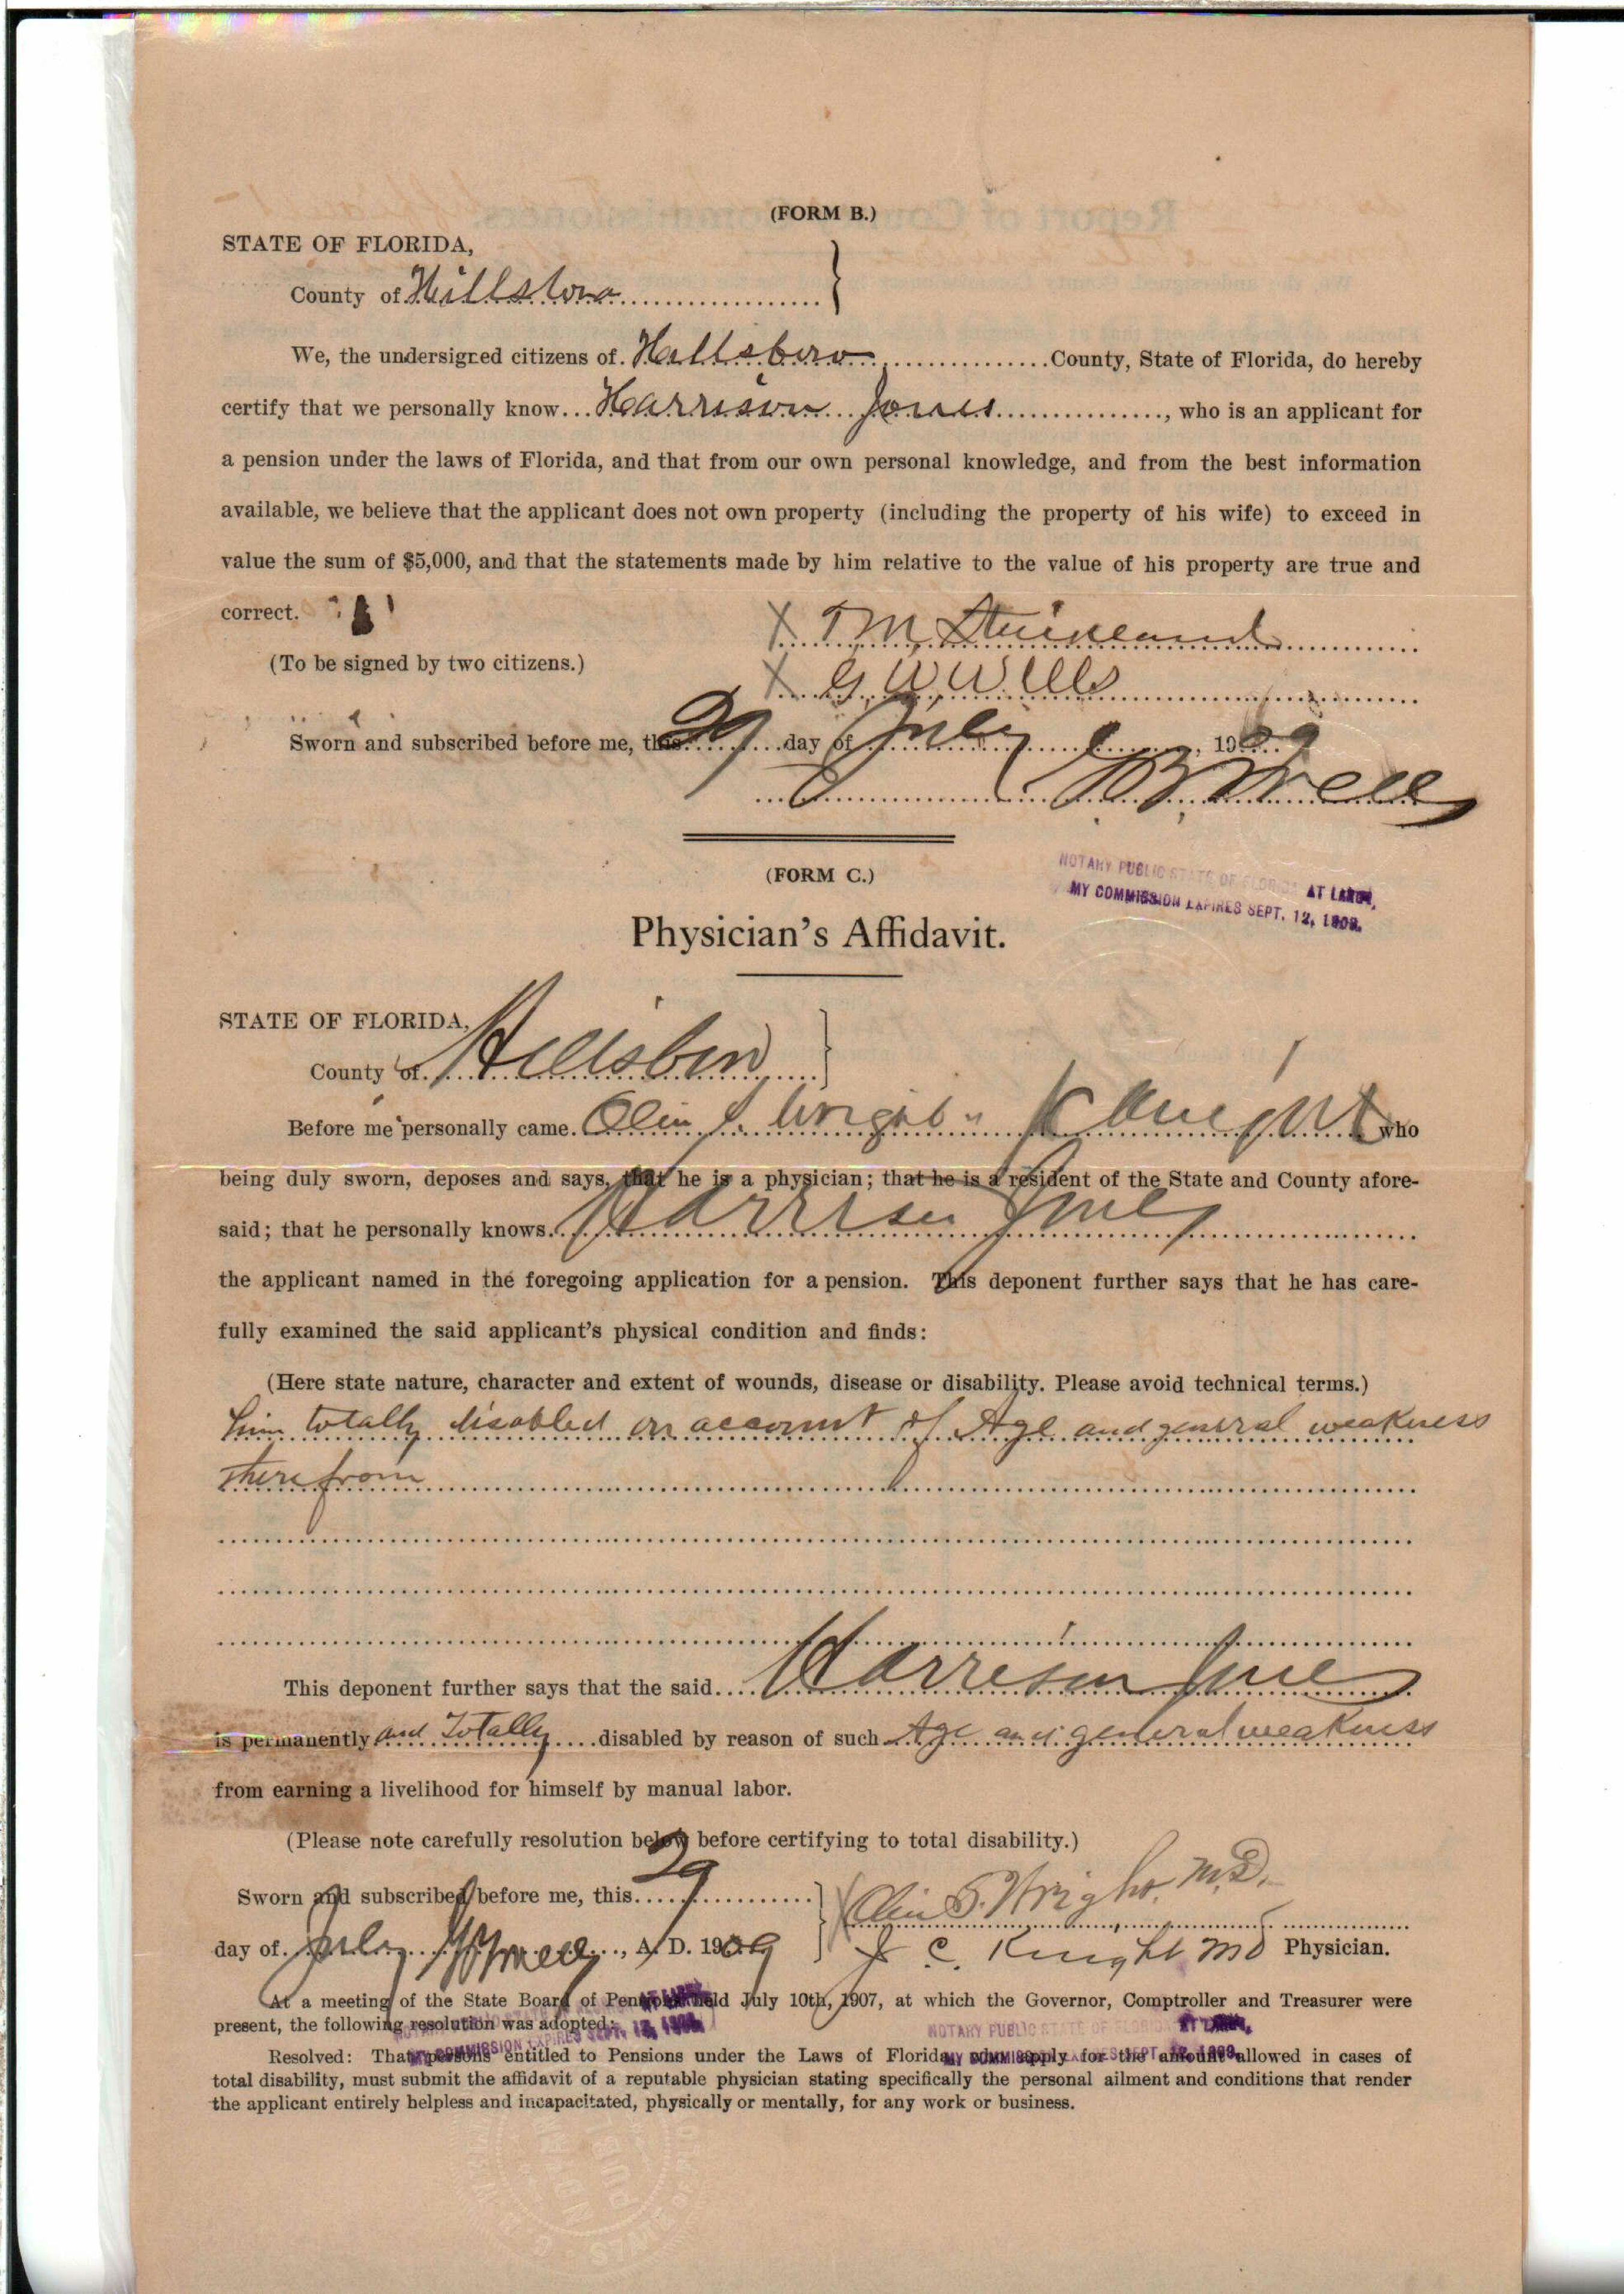 (FORM B.)
STATE OF FLORIDA,
County of Hillsboro
We, the undersigned citizens of Hillsboro County, State of Florida, do hereby
certify that we personally know Harrison Jones, who is an applicant for
a pension under the laws of Florida, and that from our own personal knowledge, and from the best information
available, we believe that the applicant does not own property (including the property of his wife) to exceed in
value the sum of $5,000, and that the statements made by him relative to the value of his property are true and
correct.
X T M Strickland
(To be signed by two citizens.)
X G W Wells
Sworn and subscribed before me, this 29 day of July, 1909
(FORM C.)
NOTARY PUBLIC STATE OF FLORIDA AT LARGE,
MY COMMISSION EXPIRES SEPT. 12, 1909.
Physician's Affidavit.
STATE OF FLORIDA,
County of Hillsboro
Before me personally came Olin S. Wright J C Knight who
being duly sworn, deposes and says, that he is a physician; that he is a resident of the State and County afore-
said; that he personally knows Harrison Jones
the applicant named in the foregoing application for a pension. This deponent further says that he has care-
fully examined the said applicant's physical condition and finds:
(Here state nature, character and extent of wounds, disease or disability. Please avoid technical terms.)
him totally disabled on account of Age and general weakness
therefrom
This deponent further says that the said Harrison Jones
is permanently and Totally disabled by reason of such Age and general weakness
from earning a livelihood for himself by manual labor.
(Please note carefully resolution below before certifying to total disability.)
Sworn and subscribed before me, this 29
Olin S. Wright, M.D.
day of July, A. D. 1909
J C. Knight MD Physician.
At a meeting of the State Board of Pensions held July 10th, 1907, at which the Governor, Comptroller and Treasurer were
present, the following resolution was adopted:
NOTARY PUBLIC STATE OF FLORIDA AT LARGE,
MY COMMISSION EXPIRES SEPT. 12, 1909.
NOTARY PUBLIC STATE OF FLORIDA AT LARGE,
MY COMMISSION EXPIRES SEPT. 12, 1909.
Resolved: That persons entitled to Pensions under the Laws of Florida, who apply for the amount allowed in cases of
total disability, must submit the affidavit of a reputable physician stating specifically the personal ailment and conditions that render
the applicant entirely helpless and incapacitated, physically or mentally, for any work or business.